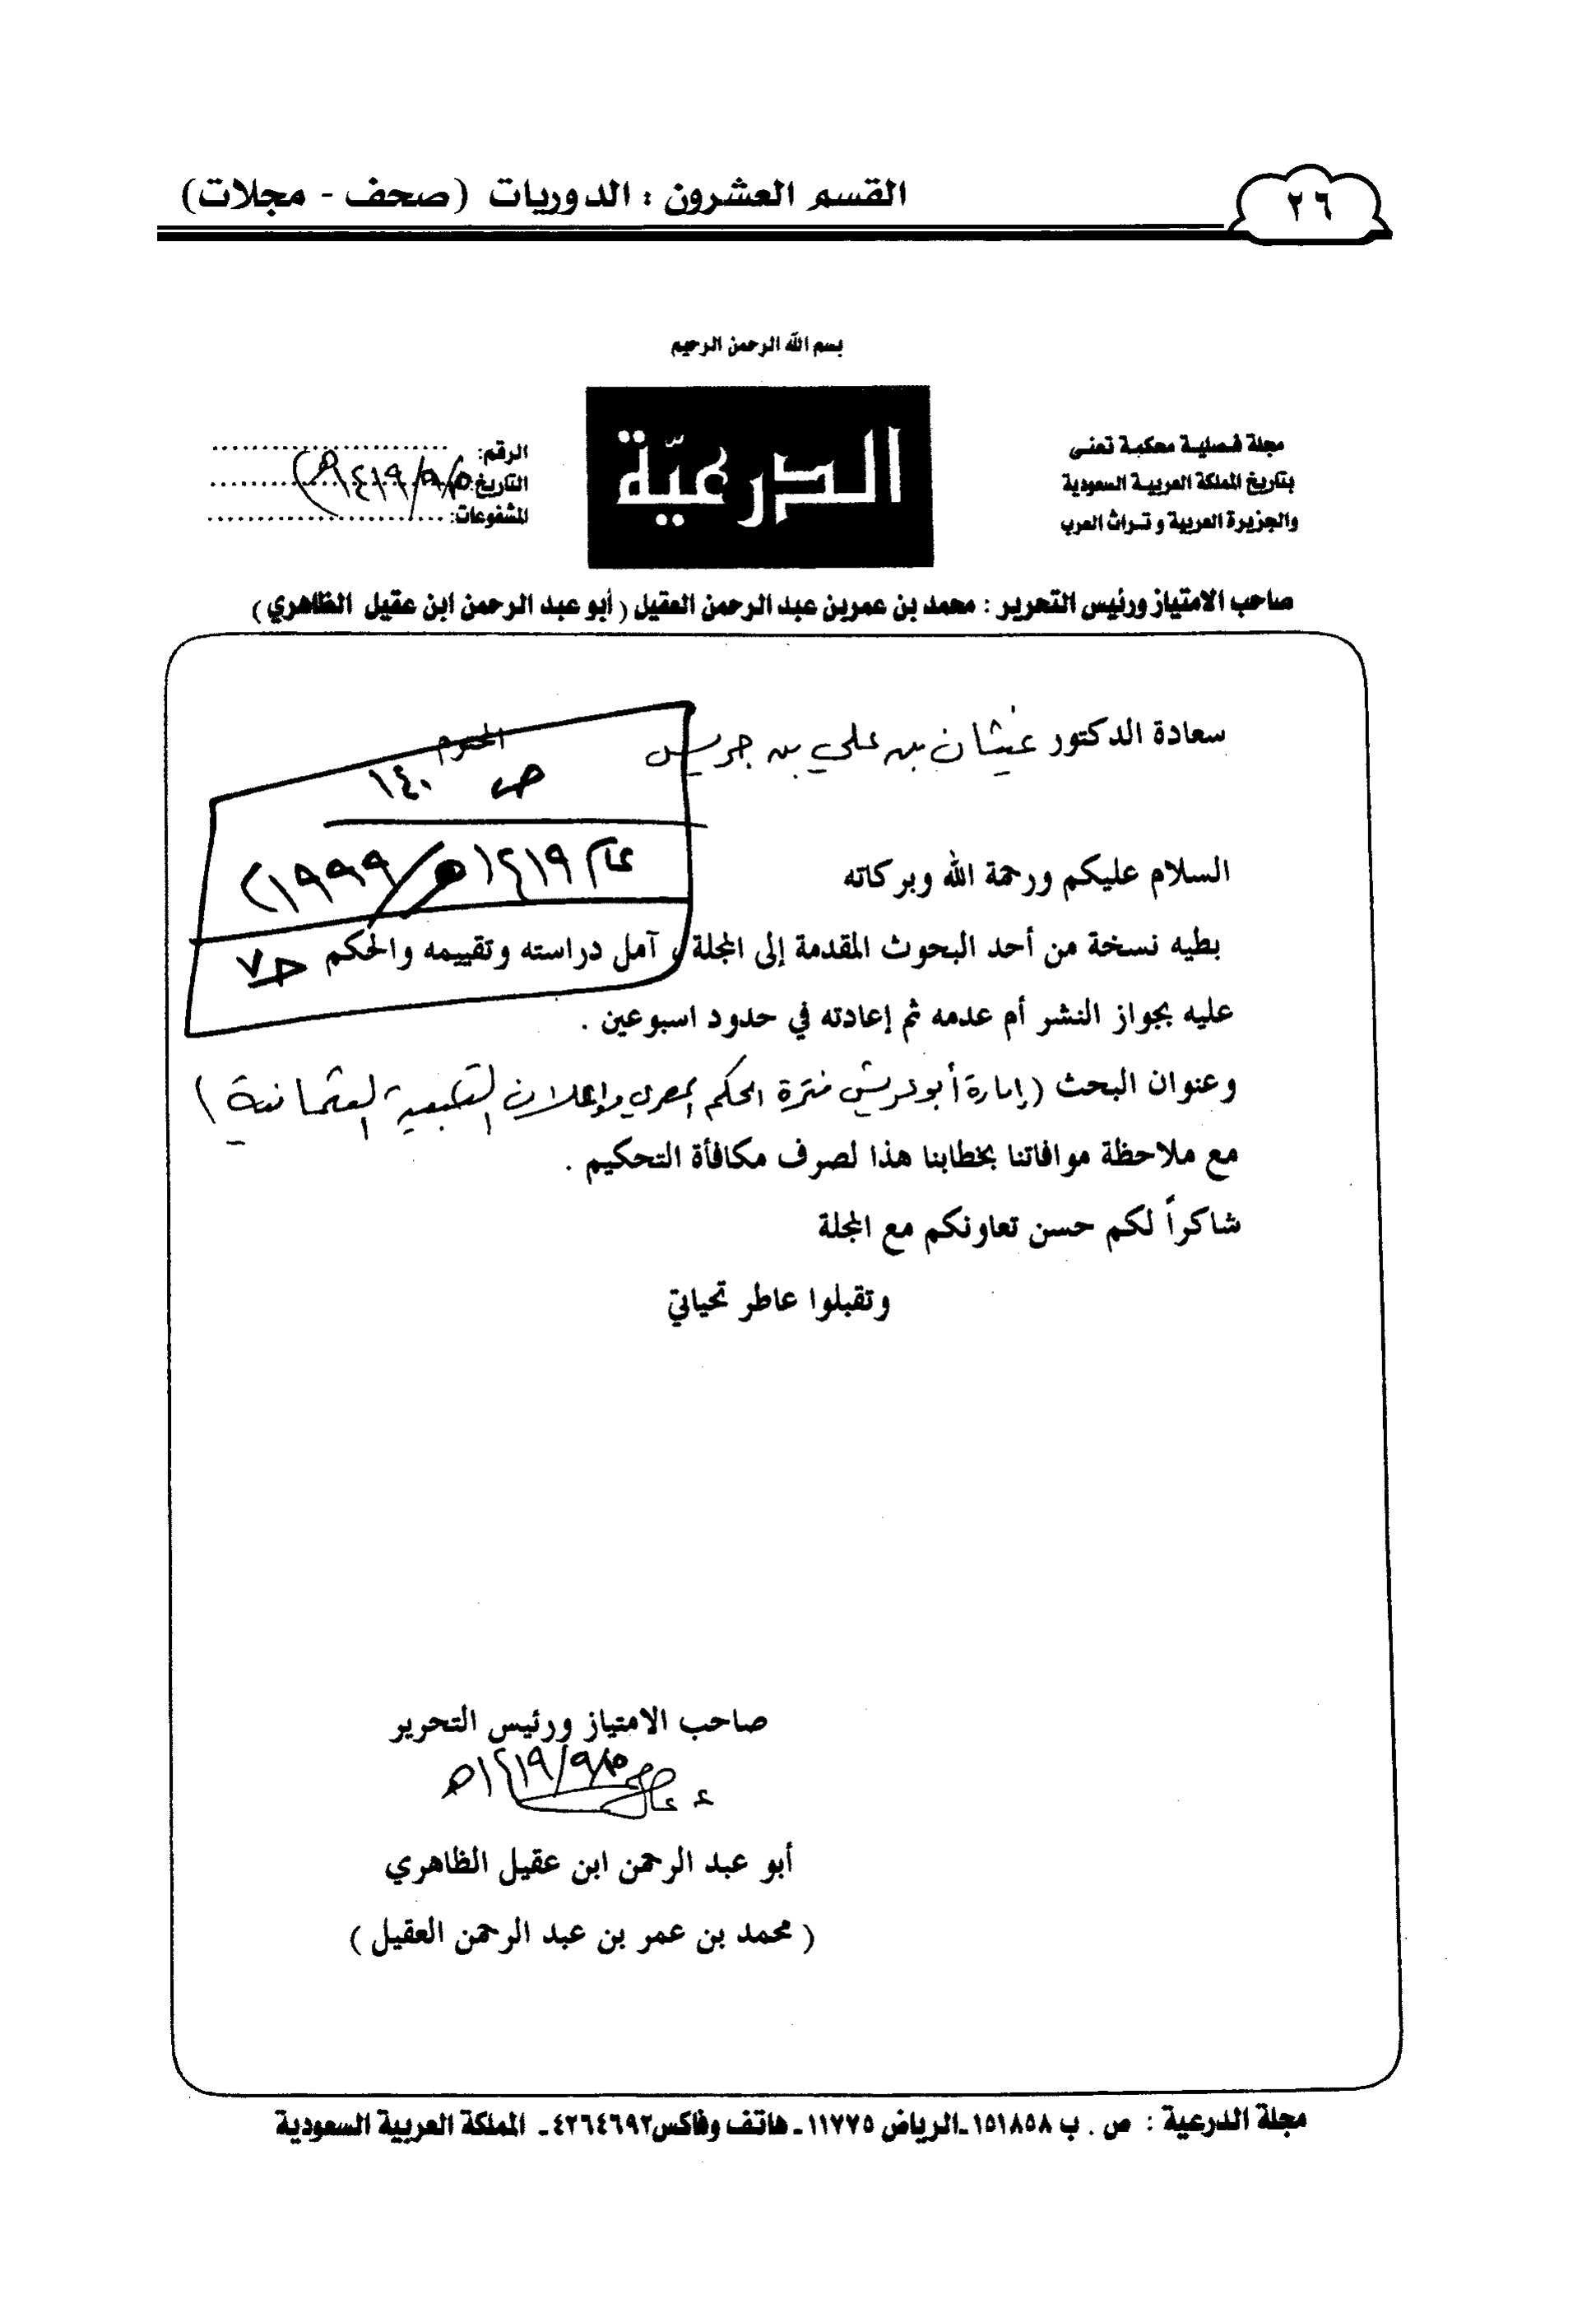 ٢٦
القسم العشرون : الدوريات (صحف - مجلات)
بسم الله الرحمن الرحيم
مجلة فصلية محكمة تعنى
بتاريخ المملكة العربية السعودية
والجزيرة العربية وتراث العرب
الدرعيّة
الرقم:
التاريخ: ١٤١٩/٩/٥هـ
المشفوعات:
صاحب الامتياز ورئيس التحرير : محمد بن عمر بن عبد الرحمن العقيل (أبو عبد الرحمن ابن عقيل الظاهري)
سعادة الدكتور غيثان بن علي بن جريس المحترم
ص ١٤٠
عام ١٤١٩هـ/١٩٩٩)
السلام عليكم ورحمة الله وبركاته
بطيه نسخة من أحد البحوث المقدمة إلى المجلة ، آمل دراسته وتقييمه والحكم
حـ٧
عليه بجواز النشر أم عدمه ثم إعادته في حدود اسبوعين .
وعنوان البحث (إمارة أبو عريش فترة الحكم المصري وإعلان التبعية العثمانية)
مع ملاحظة موافاتنا بخطابنا هذا لصرف مكافأة التحكيم .
شاكراً لكم حسن تعاونكم مع المجلة
وتقبلوا عاطر تحياتي
صاحب الامتياز ورئيس التحرير
١٤١٩/٩/٥هـ
أبو عبد الرحمن ابن عقيل الظاهري
( محمد بن عمر بن عبد الرحمن العقيل )
مجلة الدرعية : ص . ب ١٥١٨٥٨ ـ الرياض ١١٧٧٥ ـ هاتف وفاكس ٤٢٦٤٦٩٢ ـ المملكة العربية السعودية